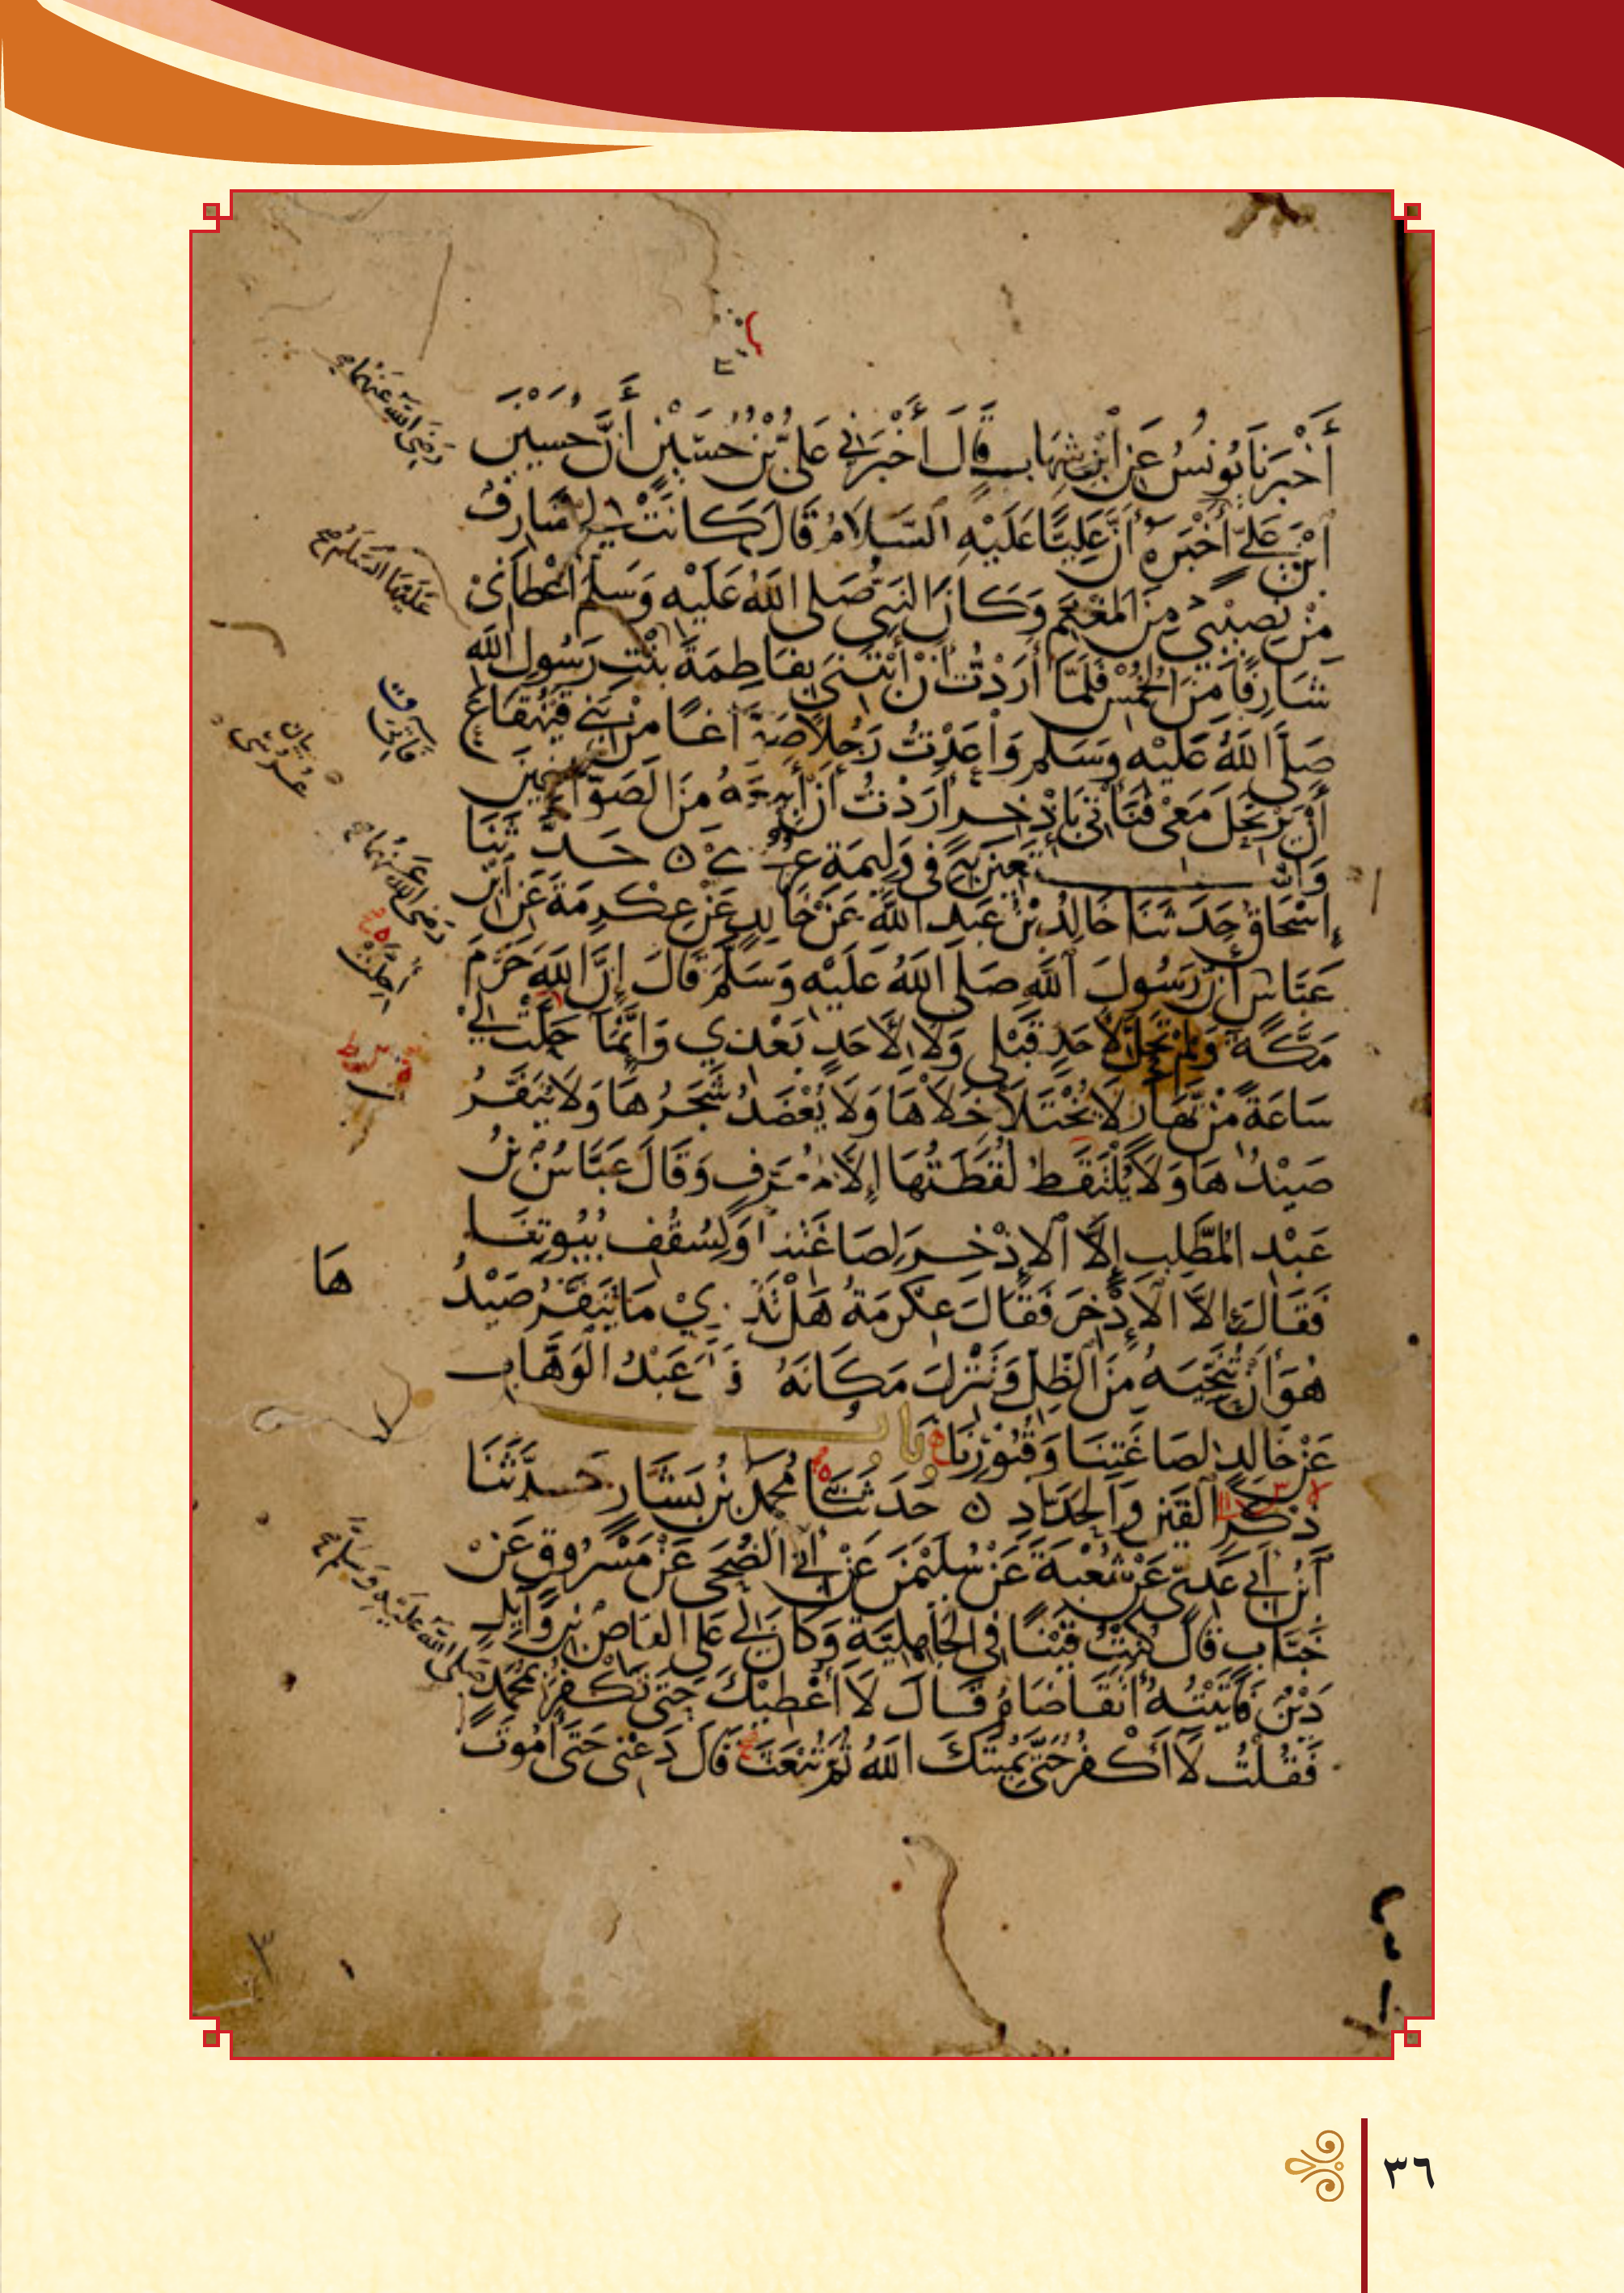 أَخْبَرَنَا يُونُسُ عَنِ ابْنِ شِهَابٍ قَالَ أَخْبَرَنِي عَلِيُّ بْنُ حُسَيْنٍ أَنَّ حُسَيْنَ
ابْنَ عَلِيٍّ أَخْبَرَهُ أَنَّ عَلِيًّا عَلَيْهِ السَّلَامُ قَالَ كَانَتْ لِي شَارِفٌ
مِنْ نَصِيبِي مِنَ الْمَغْنَمِ وَكَانَ النَّبِيُّ صَلَّى اللَّهُ عَلَيْهِ وَسَلَّمَ أَعْطَانِي
شَارِفًا مِنَ الْخُمُسِ فَلَمَّا أَرَدْتُ أَنْ أَبْتَنِيَ بِفَاطِمَةَ بِنْتِ رَسُولِ اللَّهِ
صَلَّى اللَّهُ عَلَيْهِ وَسَلَّمَ وَاعَدْتُ رَجُلًا صَوَّاغًا مِنْ بَنِي قَيْنُقَاعَ
أَنْ يَرْتَحِلَ مَعِي فَنَأْتِيَ بِإِذْخِرٍ أَرَدْتُ أَنْ أَبِيعَهُ مِنَ الصَّوَّاغِينَ
وَأَسْتَعِينَ بِهِ فِي وَلِيمَةِ عُرْسِي ه حَدَّثَنَا
إِسْحَاقُ حَدَّثَنَا خَالِدُ بْنُ عَبْدِ اللَّهِ عَنْ خَالِدٍ عَنْ عِكْرِمَةَ عَنِ ابْنِ
عَبَّاسٍ أَنَّ رَسُولَ اللَّهِ صَلَّى اللَّهُ عَلَيْهِ وَسَلَّمَ قَالَ إِنَّ اللَّهَ حَرَّمَ
مَكَّةَ وَلَمْ تَحِلَّ لِأَحَدٍ قَبْلِي وَلَا لِأَحَدٍ بَعْدِي وَإِنَّمَا حَلَّتْ لِي
سَاعَةً مِنْ نَهَارٍ لَا يُخْتَلَا خَلَاهَا وَلَا يُعْضَدُ شَجَرُهَا وَلَا يُنَفَّرُ
صَيْدُهَا وَلَا يُلْتَقَطُ لُقَطَتُهَا إِلَّا لِمُعَرِّفٍ وَقَالَ عَبَّاسُ بْنُ
عَبْدِ الْمُطَّلِبِ إِلَّا الْإِذْخِرَ لِصَاغَتِنَا وَلِسُقُفِ بُيُوتِنَا
فَقَالَ إِلَّا الْإِذْخِرَ فَقَالَ عِكْرِمَةُ هَلْ تَدْرِي مَا يُنَفَّرُ صَيْدُ
هَا
هُوَ أَنْ تُنَحِّيَهُ مِنَ الظِّلِّ وَتَنْزِلَ مَكَانَهُ قَالَ عَبْدُ الْوَهَّابِ
عَنْ خَالِدٍ لِصَاغَتِنَا وَقُبُورِنَا بَابُ
ذِكْرِ الْقَيْنِ وَالْحَدَّادِ ه حَدَّثَنَا مُحَمَّدُ بْنُ بَشَّارٍ حَدَّثَنَا
ابْنُ أَبِي عَدِيٍّ عَنْ شُعْبَةَ عَنْ سُلَيْمَنَ عَنْ أَبِي الضُّحَى عَنْ مَسْرُوقٍ عَنْ
خَبَّابٍ قَالَ كُنْتُ قَيْنًا فِي الْجَاهِلِيَّةِ وَكَانَ لِي عَلَى الْعَاصِ بْنِ وَائِلٍ
دَيْنٌ فَأَتَيْتُهُ أَتَقَاضَاهُ قَالَ لَا أُعْطِيكَ حَتَّى تَكْفُرَ بِمُحَمَّدٍ
فَقُلْتُ لَا أَكْفُرُ حَتَّى يُمِيتَكَ اللَّهُ ثُمَّ تُبْعَثَ قَالَ دَعْنِي حَتَّى أَمُوتَ
رَضِيَ اللَّهُ عَنْهُمَا
عَلَيْهَا السَّلَامُ
رَضِيَ اللَّهُ عَنْهُمَا
أُحِلَّتْ
صَلَّى اللَّهُ عَلَيْهِ وَسَلَّمَ
٣٦